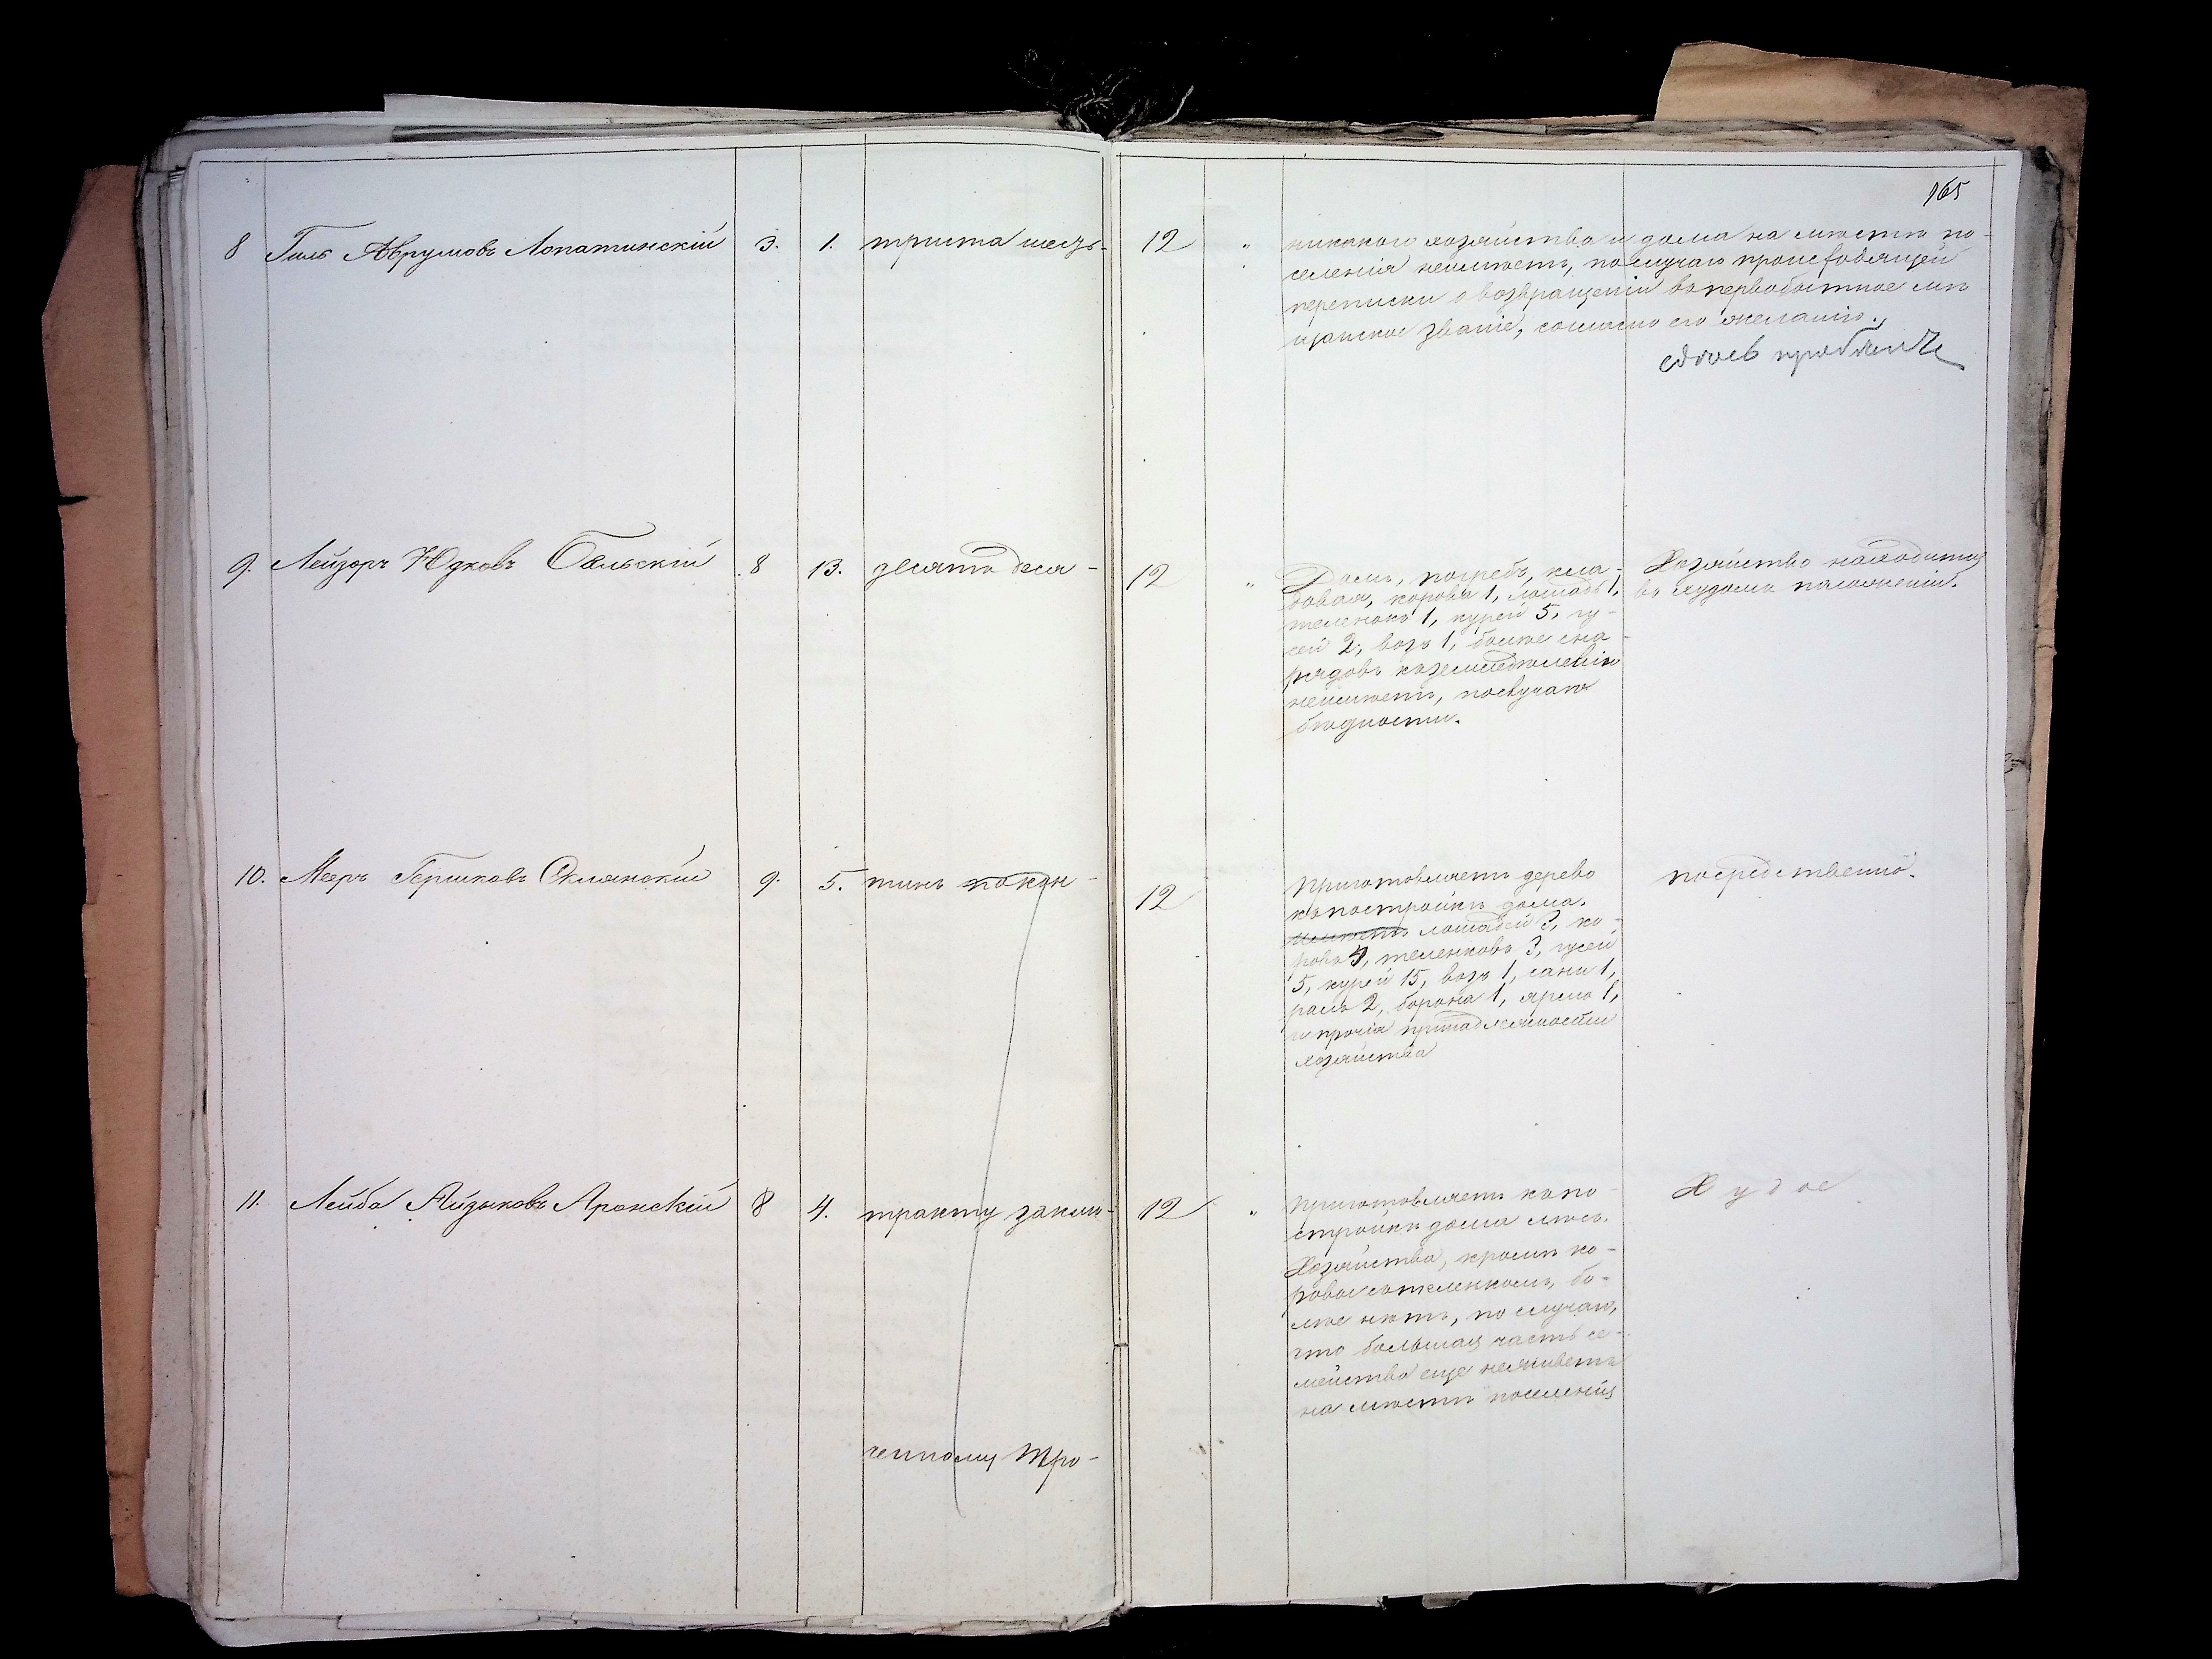 165
8 Гиль Аврумовъ Лопатинскій 3. 1. триста шесть- 12 "
никакого хозяйства и дома на мѣстѣ по-
селенія неимѣетъ, по случаю происходящей
переписки о возвращеніи въ первобытное мѣ
щанское званіе, согласно его желанію.
9. Лейзоръ Юдковъ Бѣльскій 8 13. десятъ деся- 12 "
Домъ, погребъ, кла-
довая, корова 1, лошадь 1,
теленокъ 1, курей 5, гу-
сей 2, возъ 1, болѣе сна-
рядовъ къ земледѣлію
неимѣетъ, по случаю
бѣдности.
Хозяйство находится
въ худомъ положеніи.
10. Мееръ Гершковъ Склянскій 9. 5. тинъ покон- 12
Приготовляетъ дерево
къ постройкѣ дома.
Имѣетъ лошадей 3, ко-
ровъ 4, теленковъ 3, гусей
5, курей 15, возъ 1, сани 1,
ралъ 2, борона 1, ярмо 1,
и прочія принадлежности
хозяйства
посредственно.
11. Лейба Айзыковъ Аронскій 8 4. тракту заклю- 12 "
Приготовляетъ къ по-
стройкѣ дома лѣсъ.
Хозяйства, кромѣ ко-
ровы съ теленкомъ, бо-
лѣе нѣтъ, по случаю,
что большая часть се-
мейства еще неживетъ
на мѣстѣ поселенія
Худое
ченному Тро-